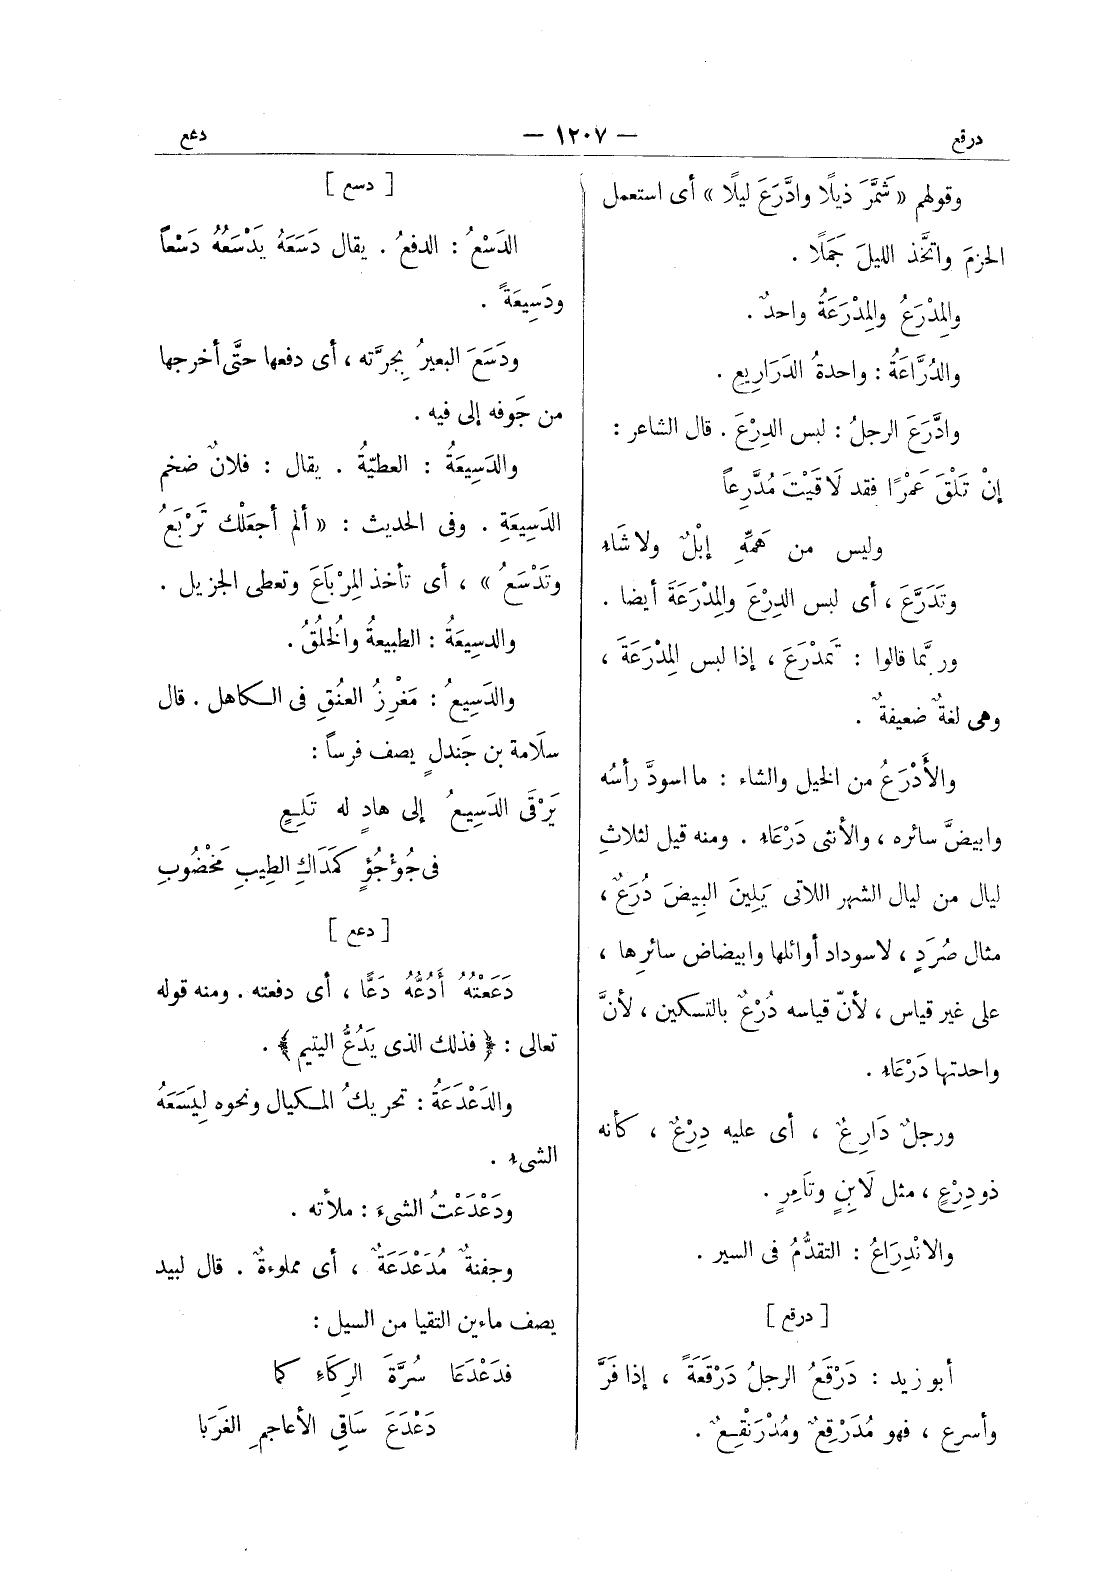 درقع
— ١٢٠٧ —
دعع
وقولهم « شَمَّرَ ذيلًا وادَّرَعَ ليلًا » أى استعمل
الحزمَ واتَّخذ الليلَ جَمَلًا .
والمِدْرَعُ والمِدْرَعَةُ واحدٌ .
والدُرَّاعَةُ : واحدةُ الدَرَارِيعِ .
وادَّرَعَ الرجلُ : لبس الدِرْعَ . قال الشاعر :
إنْ تَلْقَ عَمْرًا فقد لَاقَيْتَ مُدَّرِعاً
وليس من هَمِّهِ إبْلٌ ولا شَاءِ
وتَدَرَّعَ ، أى لبس الدِرْعَ والمِدْرَعَةَ أيضا .
وربَّما قالوا : تَمَدْرَعَ ، إذا لبس المِدْرَعَةَ ،
وهى لغةٌ ضعيفةٌ .
والأَدْرَعُ من الخيل والشاء : ما اسودَّ رأسُه
وابيضَّ سائره ، والأنثى دَرْعَاء . ومنه قيل لثلاثِ
ليال من ليال الشهر اللاتى يَلِينَ البِيضَ دُرَعٌ ،
مثال صُرَدٍ ، لاسوداد أوائلها وابيضاض سائرِها ،
على غير قياس ، لأنّ قياسه دُرْعٌ بالتسكين ، لأنَّ
واحدتها دَرْعَاء .
ورجلٌ دَارِعٌ ، أى عليه دِرْعٌ ، كأنه
ذو دِرْعٍ ، مثل لَابِنٍ وتَامِرٍ .
والانْدِرَاعُ : التقدُّمُ فى السير .
[ درقع ]
أبو زيد : دَرْقَعُ الرجلُ دَرْقَعَةً ، إذا فَرَّ
وأسرع ، فهو مُدَرْقِعٌ ومُدْرَنْقِعٌ .
[ دسع ]
الدَسْعُ : الدفعُ . يقال دَسَعَهُ يَدْسَعُهُ دَسْعاً
ودَسِيعَةً .
ودَسَعَ البعيرُ بِجرَّته ، أى دفعها حتَّى أخرجها
من جَوفه إلى فيه .
والدَسِيعَةُ : العطيّةُ . يقال : فلانٌ ضخم
الدَسِيعَةِ . وفى الحديث : « ألم أجعَلْك تَرْبَعُ
وتَدْسَعُ » ، أى تأخذ المِرْبَاعَ وتعطى الجزيل .
والدسِيعَةُ : الطبيعةُ والخُلُقُ .
والدَسِيعُ : مَغْرِزُ العنُقِ فى الكاهل . قال
سلَامة بن جَندلٍ يصف فرساً :
يَرْقَى الدَسِيعُ إلى هادٍ له تَلِعٍ
فى جُوْجُؤٍ كَمَدَاكِ الطِيبِ مَخْضُوبِ
[ دعع ]
دَعَعْتُهُ أَدُعُّهُ دَعًّا ، أى دفعته . ومنه قوله
تعالى : ﴿ فذلك الذى يَدُعُّ اليتيم ﴾ .
والدَعْدَعَةُ : تحريكُ المكيال ونحوه لِيَسَعَهُ
الشىء .
ودَعْدَعْتُ الشىءَ : ملأته .
وجفنةٌ مُدَعْدَعَةٌ ، أى مملوءةٌ . قال لبيد
يصف ماءين التقيا من السيل :
فدَعْدَعَا سُرَّةَ الرِكَاءِ كما
دَعْدَعَ سَاقِى الأعاجمِ الغَرَبَا